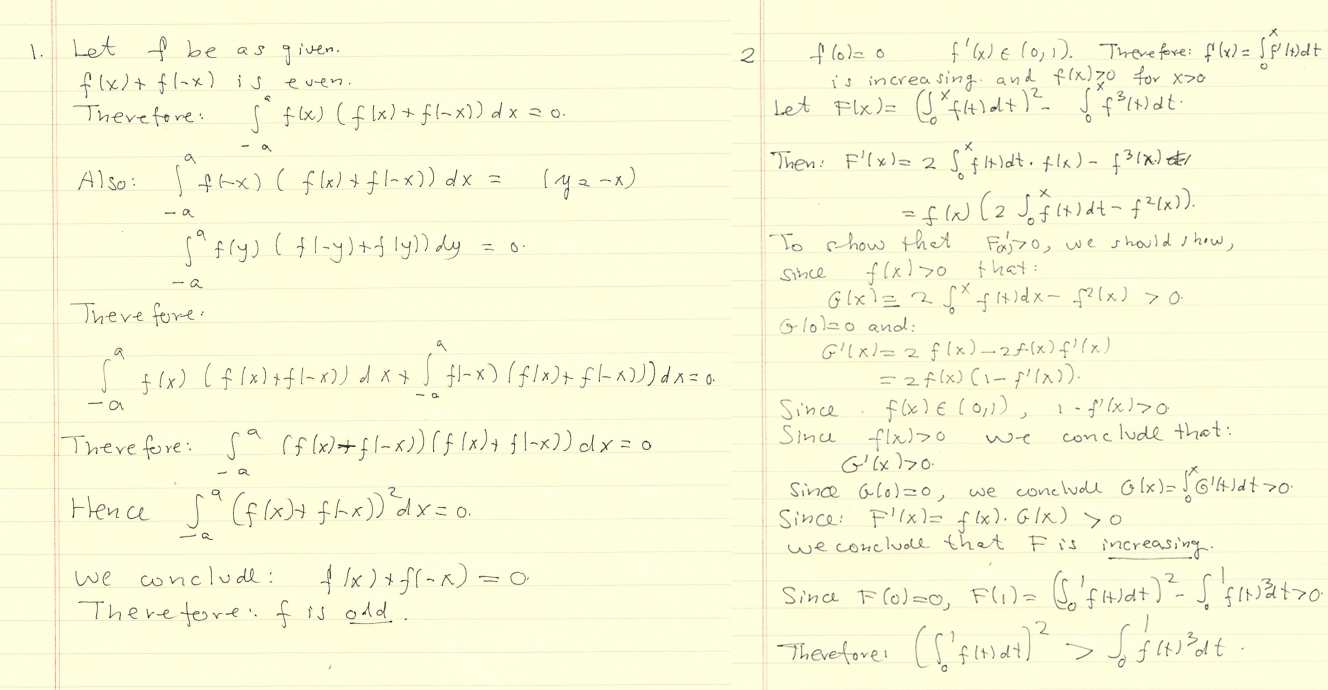 1. Let f be as given.
f(x)+ f(-x) is even.
Therefore: ∫_{-a}^{a} f(x) (f(x)+f(-x)) dx = 0.
Also: ∫_{-a}^{a} f(-x) ( f(x)+f(-x)) dx = (y=-x)
∫_{-a}^{a} f(y) ( f(-y)+f(y)) dy = 0.
Therefore:
∫_{-a}^{a} f(x) (f(x)+f(-x)) dx + ∫_{-a}^{a} f(-x) (f(x)+ f(-x))) dx = 0.
Therefore: ∫_{-a}^{a} (f(x)+f(-x)) (f(x)+ f(-x)) dx = 0
Hence ∫_{-a}^{a} (f(x)+ f(-x))² dx = 0.
We conclude: f(x)+f(-x) = 0.
Therefore: f is odd.
2 f(0)= 0 f'(x) ∈ (0,1). Therefore: f(x) = ∫_0^x f'(t)dt
is increasing. and f(x)>0 for x>0
Let F(x)= (∫_0^x f(t)dt)² - ∫_0^x f³(t)dt.
Then: F'(x)= 2 ∫_0^x f(t)dt. f(x) - f³(x)
= f(x) (2 ∫_0^x f(t)dt - f²(x)).
To show that F'(x)>0, we should show,
since f(x)>0 that:
G(x) = 2 ∫_0^x f(t)dx - f²(x) > 0.
G(0)=0 and:
G'(x)= 2 f(x) - 2f(x)f'(x)
= 2f(x) (1- f'(x)).
Since f(x) ∈ (0,1), 1 - f'(x)>0
Since f(x)>0 we conclude that:
G'(x)>0.
Since G(0)=0, we conclude G(x)= ∫_0^x G'(t)dt >0.
Since: F'(x)= f(x). G(x) > 0
we conclude that F is increasing.
Since F(0)=0, F(1)= (∫_0^1 f(t)dt)² - ∫_0^1 f(t)³dt>0.
Therefore: (∫_0^1 f(t)dt)² > ∫_0^1 f(t)³dt.